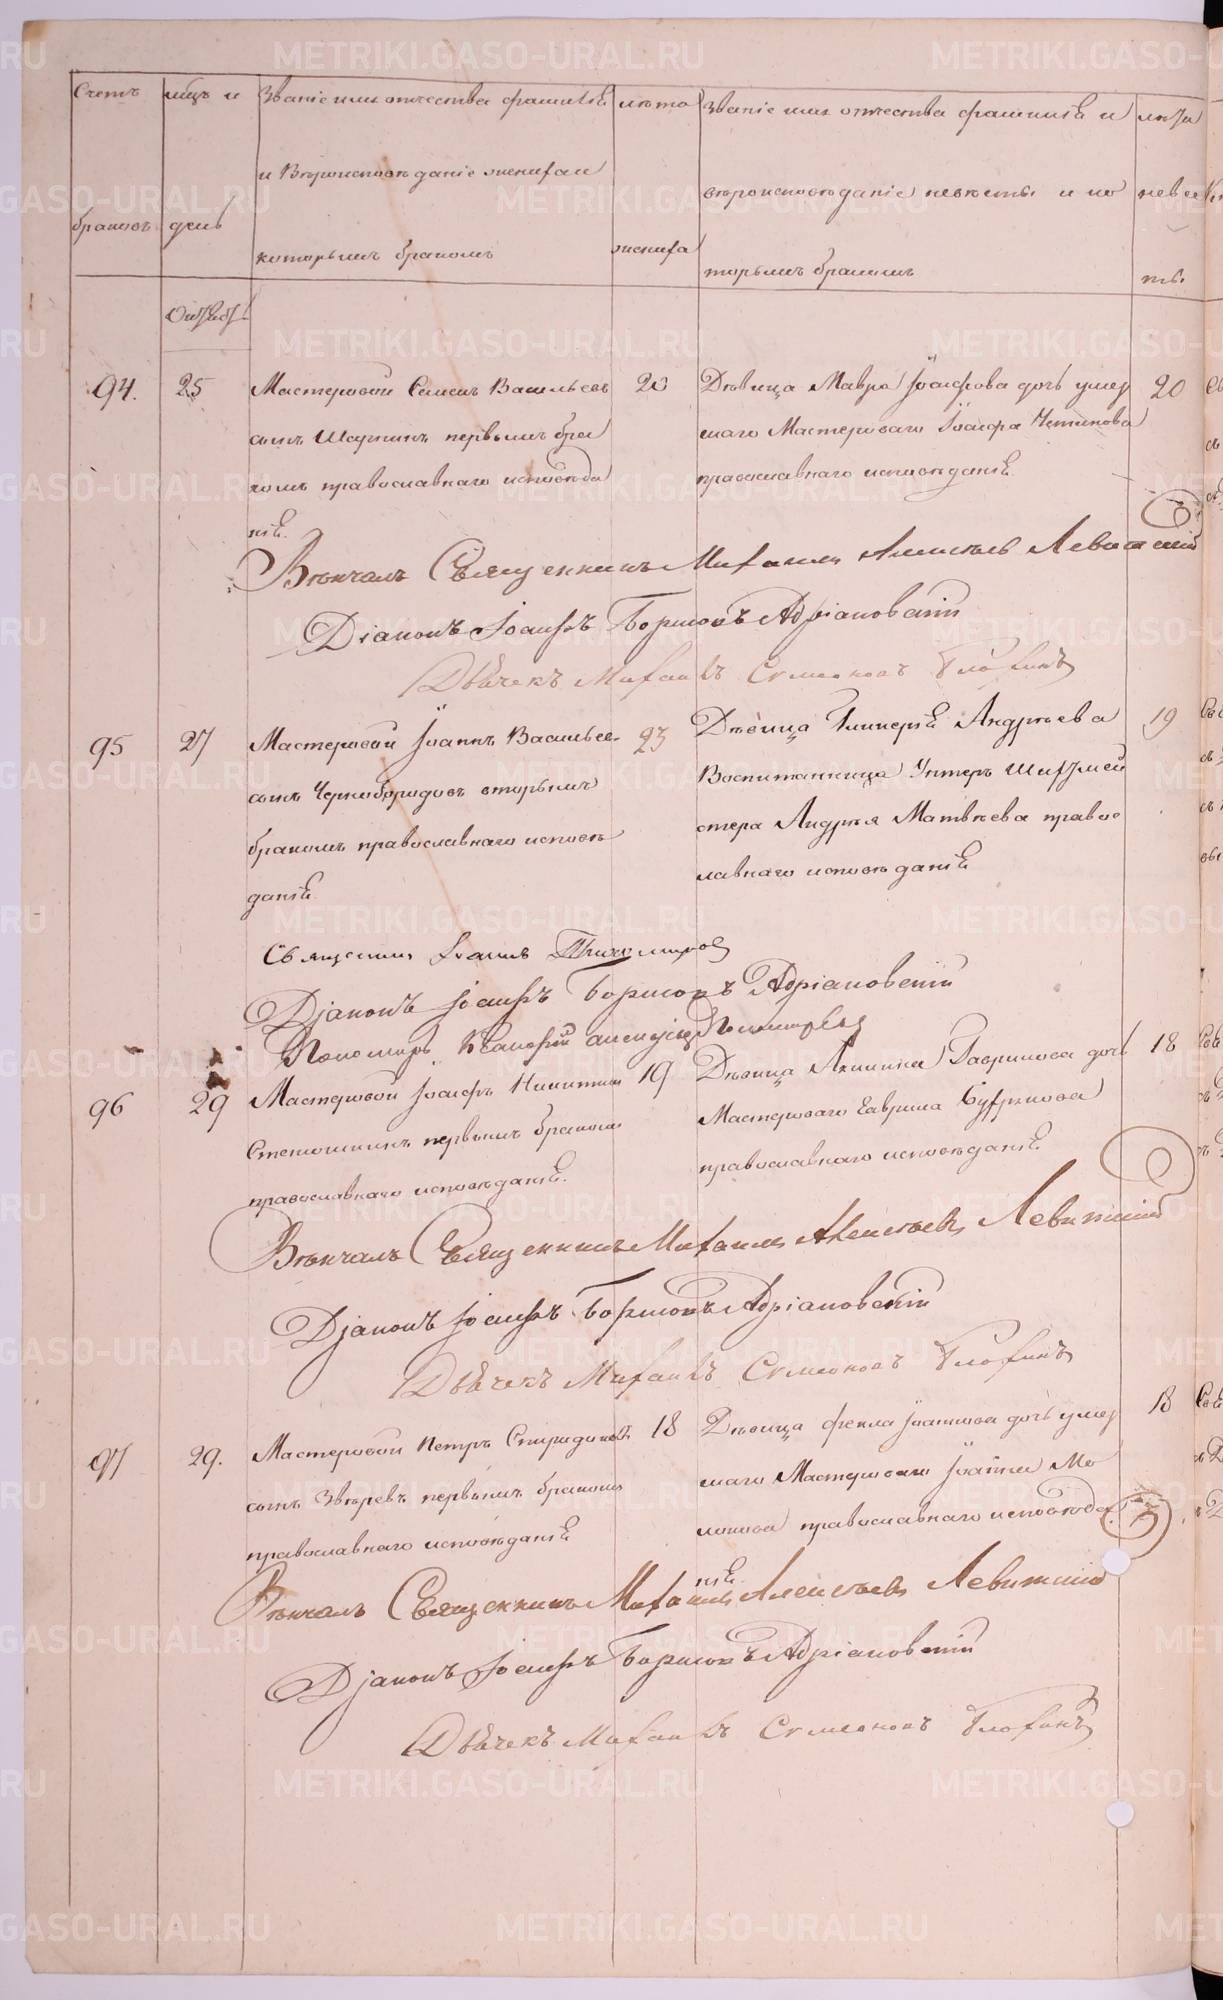 Счетъ браковъ
мцъ и день
Званіе имя отчества фамилія
и вѣроисповѣданіе жениха и
которымъ бракомъ
лѣта жениха
Званіе имя отчества фамилія и
вѣроисповѣданіе невѣсты и ко
торымъ бракомъ
лѣта невѣс
ты
94.
25
Мастеровой Семенъ Васильевъ
сынъ первымъ бра
комъ православнаго исповѣда
нія.
20
Дѣвица Мавра Іосифова дочь умер
шаго Мастероваго Іосифа
православнаго исповѣданія
20
Вѣнчалъ Священникъ Михаилъ Алексѣевъ Левитскій
Діаконъ Іосифъ Адріановскій
Дьячекъ Михаилъ Симеоновъ
95
27
Мастеровой Іоаннъ Васильев
сынъ Чернобородовъ вторымъ
бракомъ православнаго исповѣ
данія
23
Дѣвица Гликерія Андреева
Воспитанница Унтеръ Шихтмей
стера Андрея Матвѣева правос
лавнаго исповѣданія
19
Священник Іоаннъ
Діаконъ Іосифъ Адріановскій
Пономарь
96
29
Мастеровой Іосифъ Никитин
первымъ бракомъ
православнаго исповѣданія.
19
Дѣвица Акилина Гаврилова дочь
Мастероваго Гаврила
православнаго исповѣданія
18
Вѣнчалъ Священникъ Михаилъ Алексѣевъ Левитскій
Діаконъ Іосифъ Адріановскій
Дьячекъ Михаилъ Симеоновъ
97
29.
Мастеровой Петръ Спиридоновъ
сынъ Звѣревъ первымъ бракомъ
православнаго исповѣданія
18
Дѣвица Фекла Іоаннова дочь умер
шаго Мастероваго Іоанна Мо
православнаго исповѣда
нія.
18
Вѣнчалъ Священникъ Михаилъ Алексѣевъ Левитскій
Діаконъ Іосифъ Адріановскій
Дьячекъ Михаилъ Симеоновъ
METRIKI.GASO-URAL.RU